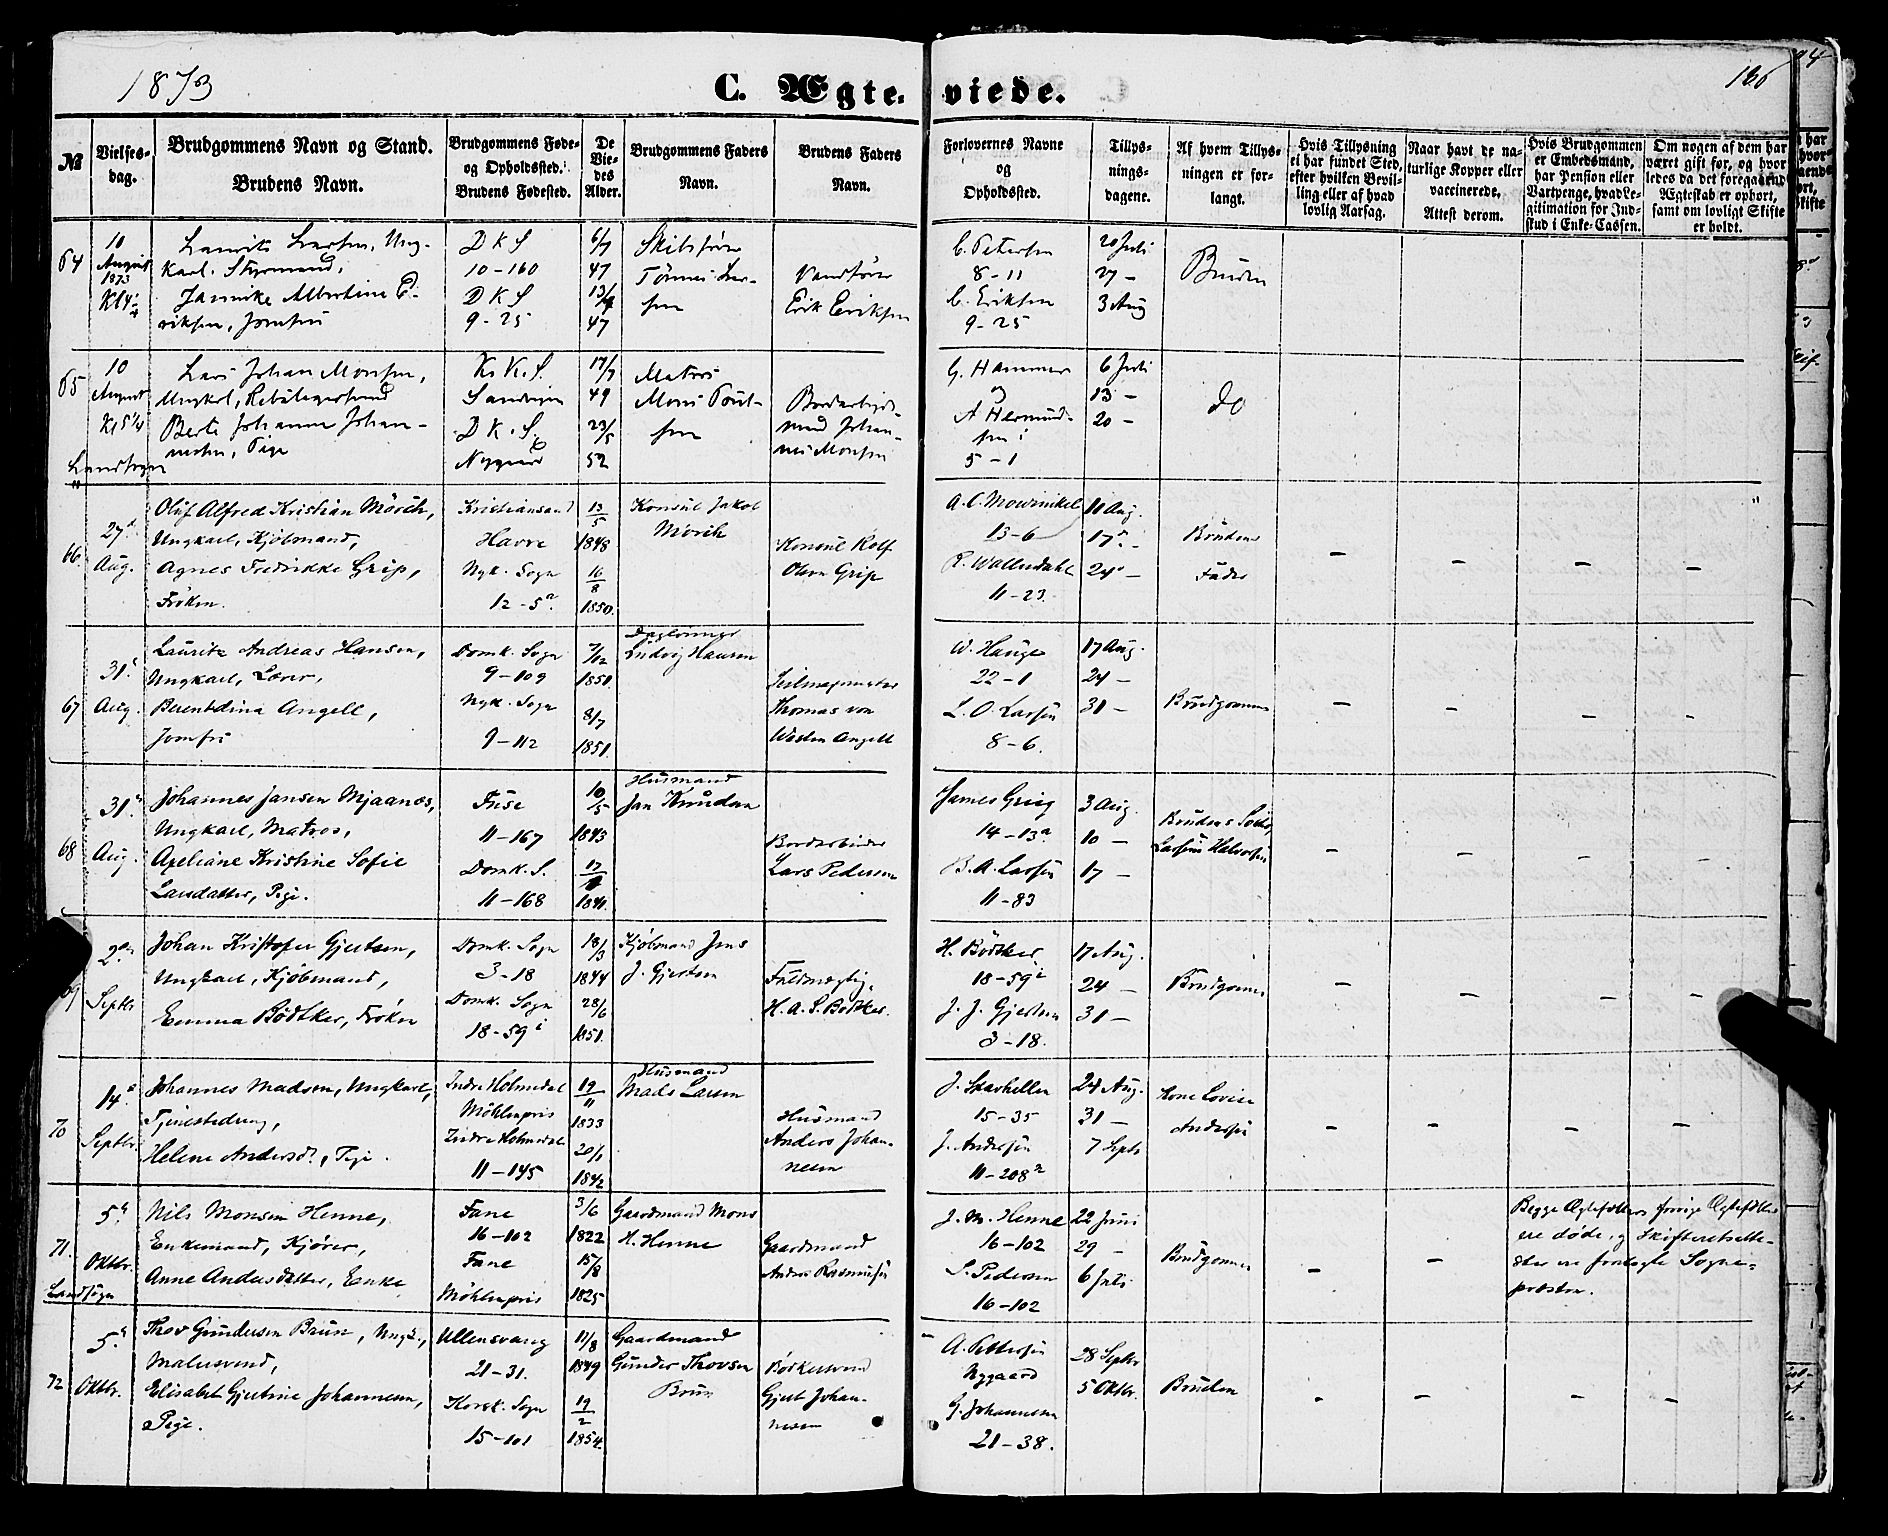 1873
C. Ægte-viede.
186
№
Vielses-dag.
Brudgommens Navn og Stand.
Brudens Navn.
Brudgommens Føde- og Opholdssted.
Brudens Fødested.
De Viedes Alder.
Brudgommens Faders Navn.
Brudens Faders Navn.
Forlovernes Navne og Opholdssted.
Tillysningsdagene.
Af hvem Tillysningen er forlangt.
Hvis Tillysning ei har fundet Sted, efter hvilken Bevilling eller af hvad lovlig Aarsag.
Naar havt de naturlige Kopper eller vaccinerede.
Attest derom.
Hvis Brudgommen er Embedsmand, har Pension eller Vartpenge, hvad Legitimation for Indskud i Enke-Cassen.
Om nogen af dem har været gift før, og hvorledes da det foregaaende Ægteskab er ophørt, samt om lovligt Skifte er holdt.
64
10 August 1873
Laurits Larsen, Ungkarl. Styrmand,
Jannike Albertine Eriksen, Jomfru
D K S
10-160
D K S
9-25
6/7 47
47
Tønnes Larsen
Erik Eriksen
C. Petersen
8-11
C. Eriksen
9-25
20 Juli
27 -
3 Aug
Bruden
65
10 August
Kl 5¼
Landsogn
Lars Johan Monsen,
Berte Johanne Johannesen, Pige
K. K. S.
Sandvigen
D. K. S.
Nygaard
17/7 49
23/5 52
Matros
Mons Poulsen
Johannes Monsen
G. Hammer
og
A Hermundsen
5-1
6 Juli
13 -
20 -
do
66.
27d Aug.
Oluf Alfred Kristian Mörch,
Ungkarl, Kjöbmand,
Agnes Fredrikke Grip,
Fröken.
Kristiansand
Havre
Nyk. Sogn
12-5a.
13/5 1848
16/8 1850.
Konsul Jakob Mörch
Konsul Rolf Olsen Grip
A. C. Mowinkel
13-6
R. Wallendahl
11-23.
10 Aug.
17d -
24d -
Brudens Fader
-
-
-
-
67
31d Aug.
Lauritz Andreas Hansen,
Ungkarl, Lærer,
Berentdina Angell,
Jomfru
Domk. Sogn
9-109
Nyk. Sogn
9-112
7/12 1850.
8/7 1851.
Daglønner
Ludvig Hansen
Thomas von Westen Angell
W. Hauge
22-1
L. O. Larsen
8-6.
17 Aug.
24 -
31 -
Brudgommen
-
-
-
-
68
31d Aug.
Johannes Jansen Mjaanes,
Ungkarl, Matros,
Axeliane Kristine Sofie
Larsdatter, Pige.
Fuse
11-167
Domk. S.
11-168
10/5 1843
1841.
Husmand
Jan Knudsen
Bordarbeider
Lars Pedersen
James Grieg
14-13a
B. A. Larsen
11-83
3 Aug.
10 -
17 -
-
-
-
-
69
2den Septbr
Johan Kristofer Gjertsen,
Ungkarl, Kjöbmand,
Emma Bödtker, Fröken
Domk. Sogn
3-18
Domk. Sogn
18-59i
18/3 1844
28/6 1851.
Kjöbmand Jens J. Gjertsen
Fuldmægtig,
H. A. S. Bödtker.
H. Bödtker
18-59i
J. J. Gjertsen
3-18.
17 Aug.
24 -
31 -
Brudgommen
-
-
-
-
70
14d Septbr.
Johannes Madsen, Ungkarl,
Tjenestedreng,
Helene Andersd., Pige.
Indre Holmedal
Möhlenpris
Indre Holmedal
11-145
19/11 1833
20/1 1842
Husmand
Mads Larsen
Husmand
Anders Johannesen
J. Skarhellen
15-35
J. Andersen
11-208a
24 Aug.
31 -
7 Septr
Kone Lovise Andersen
-
-
-
-
71.
5d Oktbr.
Landsogn
Nils Monsen Henne,
Enkemand, Kjører,
Anne Andersdatter, Enke
Fane
16-102
Fane
Möhlenpris
3/6 1822
15/8 1825
Gaardmand Mons H. Henne
Gaardmand
Anders Rasmussen
J. M. Henne
16-102
S. Pedersen
16-102
22 Juni
29 -
6 Juli
Brudgommen
-
-
Begge Ægtefællers forrige Ægtefæller
ere døde, og Skifteretsattester ere forelagte Sognepræsten.
72
5d Oktbr.
Thov Gundersen Brun, Ungk.,
Malersvend,
Elisabet Gjertine Johannesen,
Pige.
Ullensvang
21-31.
Korsk. Sogn
15-101
11/8 1849
19/2 1854.
Gaardmand
Gunder Thovsen Brun
Bödkersvend
Gjert Johannesen
A. Pettersen
Nygaard
G. Johannesen
21-38.
28 Septbr
5 Oktbr.
Bruden
-
-
-
-